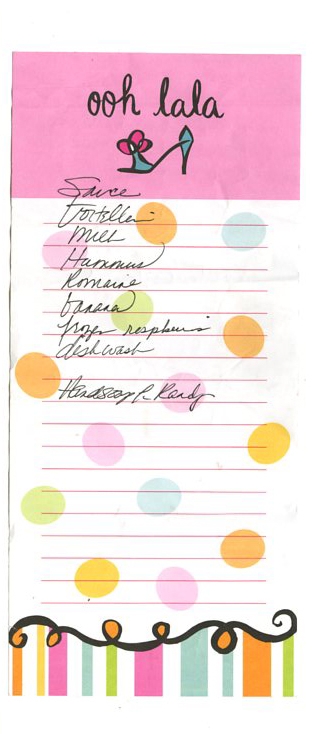 ooh lala
Sauce
Tortellini
Milk
Hummus
Romaine
banana
frozen raspberris
dishwash
Handsoap